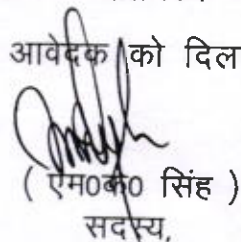 आवेदक को दिल
( एम0के0 सिंह )
सदस्य,